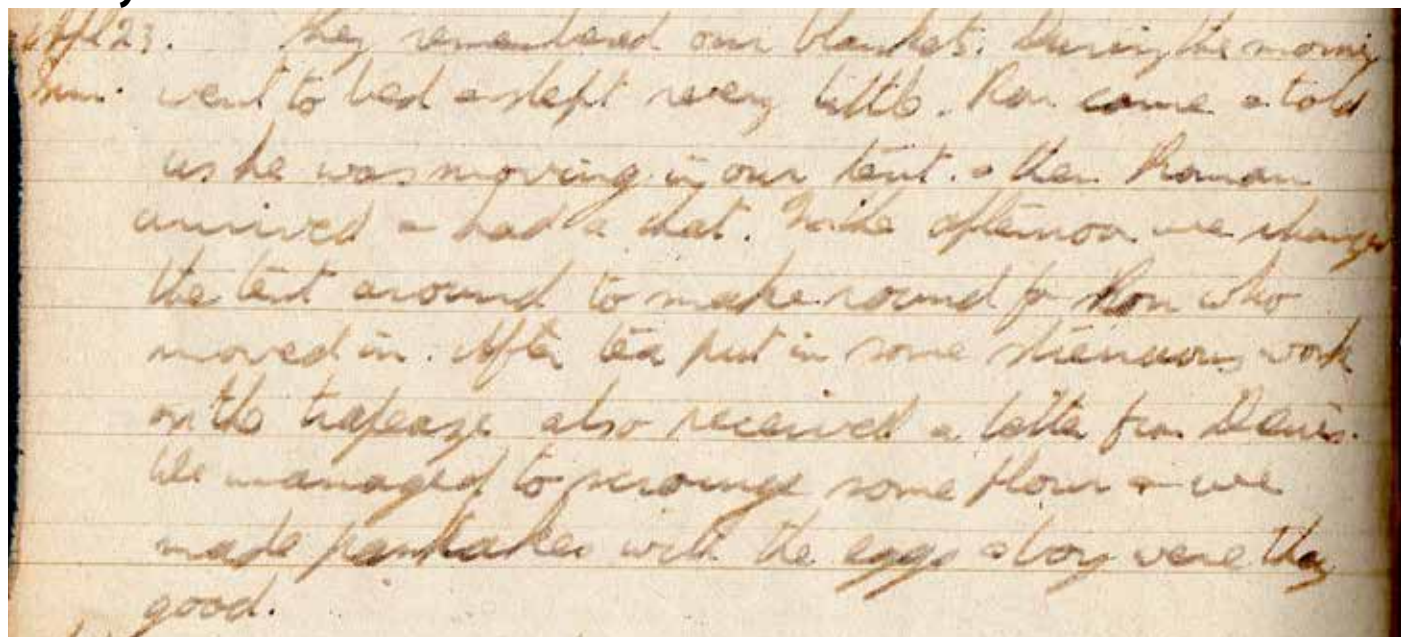 Apl 23. they remembered our blankets. During the morning
Sun. went to bed & slept very little. Ron came & told
us he was moving in our tent. & then Roman
arrived & had a chat. In the afternoon we changed
the tent around to make round for Ron who
moved in. After tea put in some strenuous work
on the trapeaze also received a letter from Denis.
We managed to scrounge some flour & we
made pankakes with the eggs & boy were they
good.